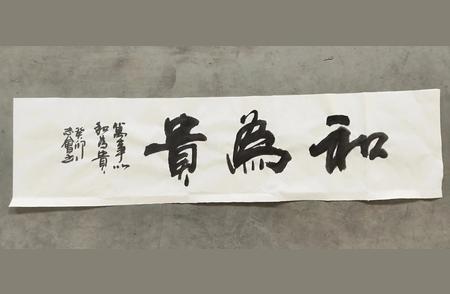 和為貴
萬事以
和為貴
癸卯